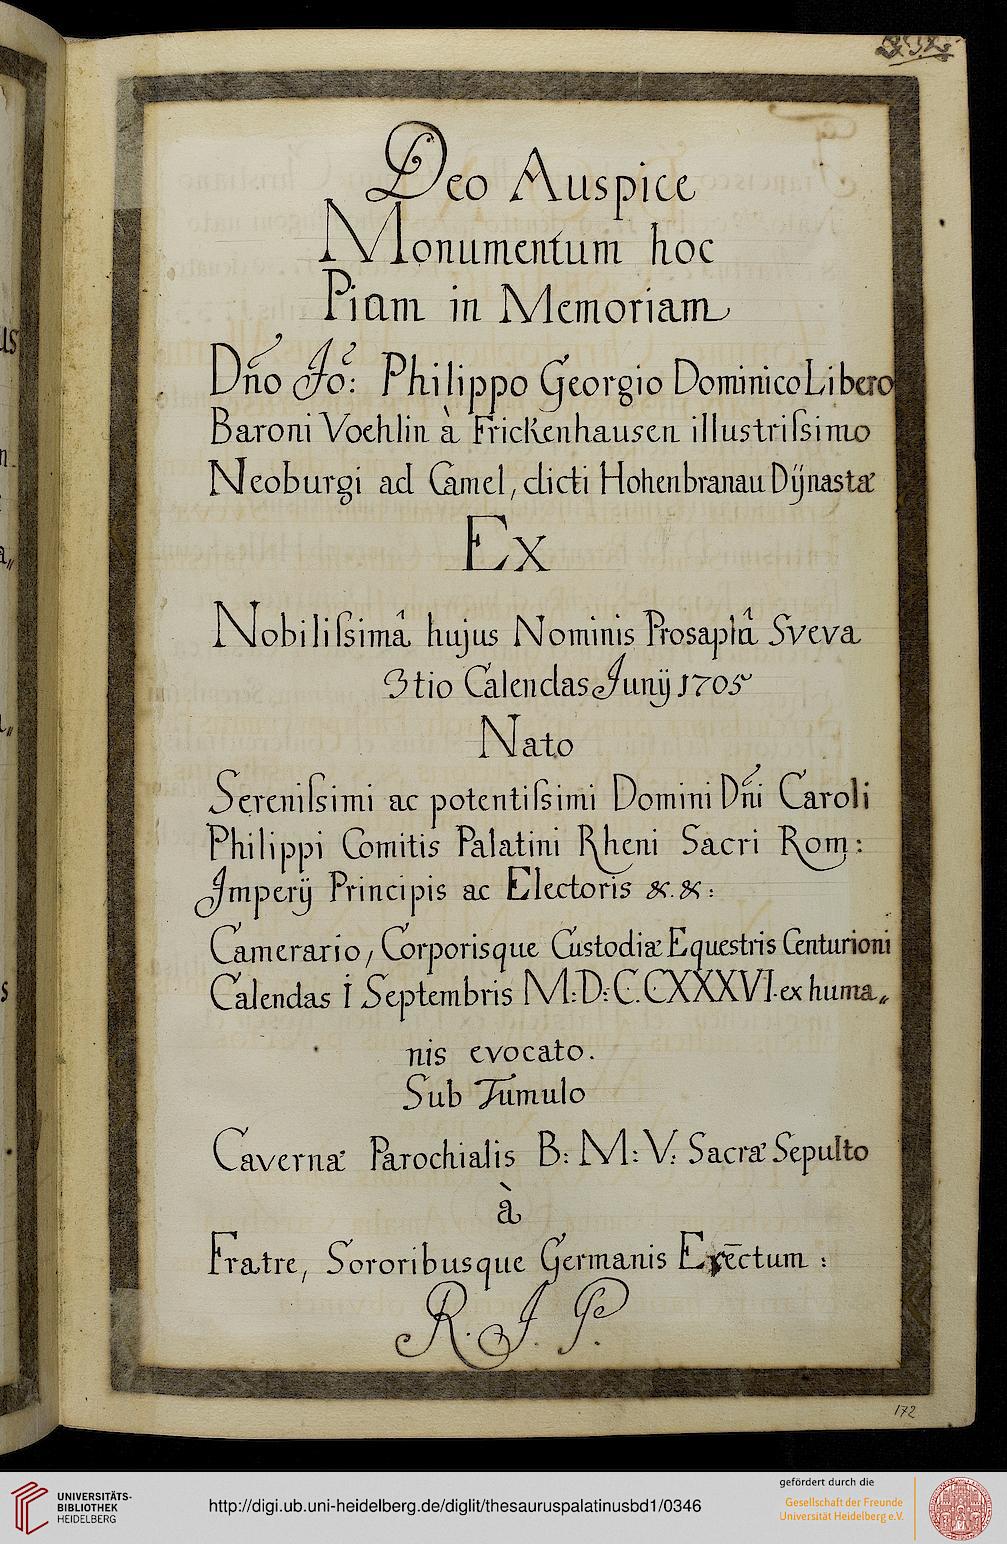 Deo Auspice
Monumentum hoc
Piam in Memoriam
Dño Jo: Philippo Georgio Dominico Libero
Baroni Voehlin à Frickenhausen illustriſsimo
Neoburgi ad Camel, dicti Hohenbranau Dÿnastæ
Ex
Nobiliſsimâ hujus Nominis Prosapiâ Sveva
3tio Calendas Junÿ 1705
Nato
Sereniſsimi ac potentiſsimi Domini Dñi Caroli
Philippi Comitis Palatini Rheni Sacri Rom:
Imperÿ Principis ac Electoris &. &:
Camerario, Corporisque Custodiæ Equestris Centurioni
Calendas I Septembris M:D:C.CXXXVI. ex huma„
nis evocato.
Sub Tumulo
Cavernæ Parochialis B: M: V: Sacræ Sepulto
à
Fratre, Sororibusque Germanis Erēctum :
R. I. P.
172
UNIVERSITÄTS-
BIBLIOTHEK
HEIDELBERG
http://digi.ub.uni-heidelberg.de/diglit/thesauruspalatinusbd1/0346
gefördert durch die
Gesellschaft der Freunde
Universität Heidelberg e.V.